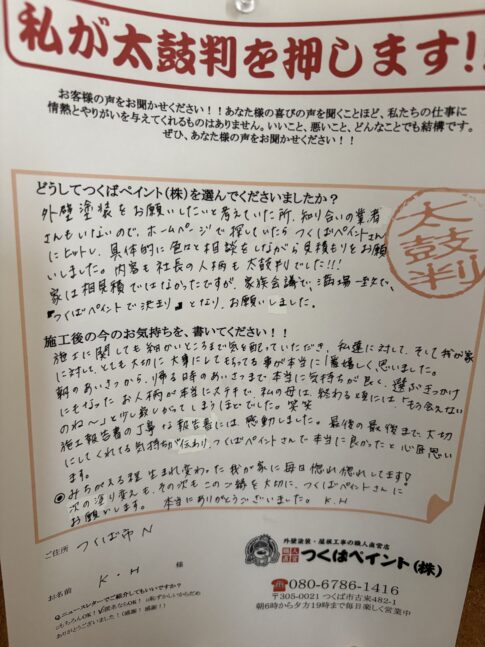 私が太鼓判を押します!!
お客様の声をお聞かせください！！あなた様の喜びの声を聞くことほど、私たちの仕事に
情熱とやりがいを与えてくれるものはありません。いいこと、悪いこと、どんなことでも結構です。
ぜひ、あなた様の声をお聞かせください！！
どうしてつくばペイント(株)を選んでくださいましたか？
外壁塗装をお願いしたいと考えていた所、知り合いの業者
さんもいないので、ホームページで探していたら つくばペイントさん
にヒットし、具体的に色々と相談をしながら見積もりをお願
いしました。内容も社長の人柄も太鼓判でした!!!
家は相見積ではなかったですが、家族会議で、満場一致で、
つくばペイントで決まり となり、お願いしました。
太鼓判
施工後の今のお気持ちを、書いてください！！
施工に関しても細かいところまで気を配っていただき、私達に対して、そして我が家
に対して、とても大切に大事にしてもらってる事が本当に嬉しく思いました。
朝のあいさつから、帰る時のあいさつまで本当に気持ちが良く、選ぶきっかけ
にもなったお人柄が本当にステキで、私の母は、終わる頃には「もう会えない
のね〜」と少し寂しがってしまうほどでした。笑笑
施工報告書の丁寧な報告書には、感動しました。最後の最後まで、大切
にしてくれてる気持ちが伝わり、つくばペイントさんで本当に良かったと心底思い
ます。
◉みちがえる程 生まれ変わった我が家に毎日惚れ惚れしてます!
次の塗り変えも、その次も このご縁を大切に、つくばペイントさんに
お願いします。 本当にありがとうございました。 K.H
ご住所 つくば市 N
お名前 K・H 様
Q.ニュースレターでご紹介してもいいですか？
□もちろんOK！ □匿名ならOK！ □恥ずかしいからだめ
ありがとうございました！(感謝！感謝！)
外壁塗装・屋根工事の職人直営店
職人直営 つくばペイント(株)
☎080-6786-1416
〒305-0021 つくば市古来482-1
朝6時から夕方19時まで毎日楽しく営業中